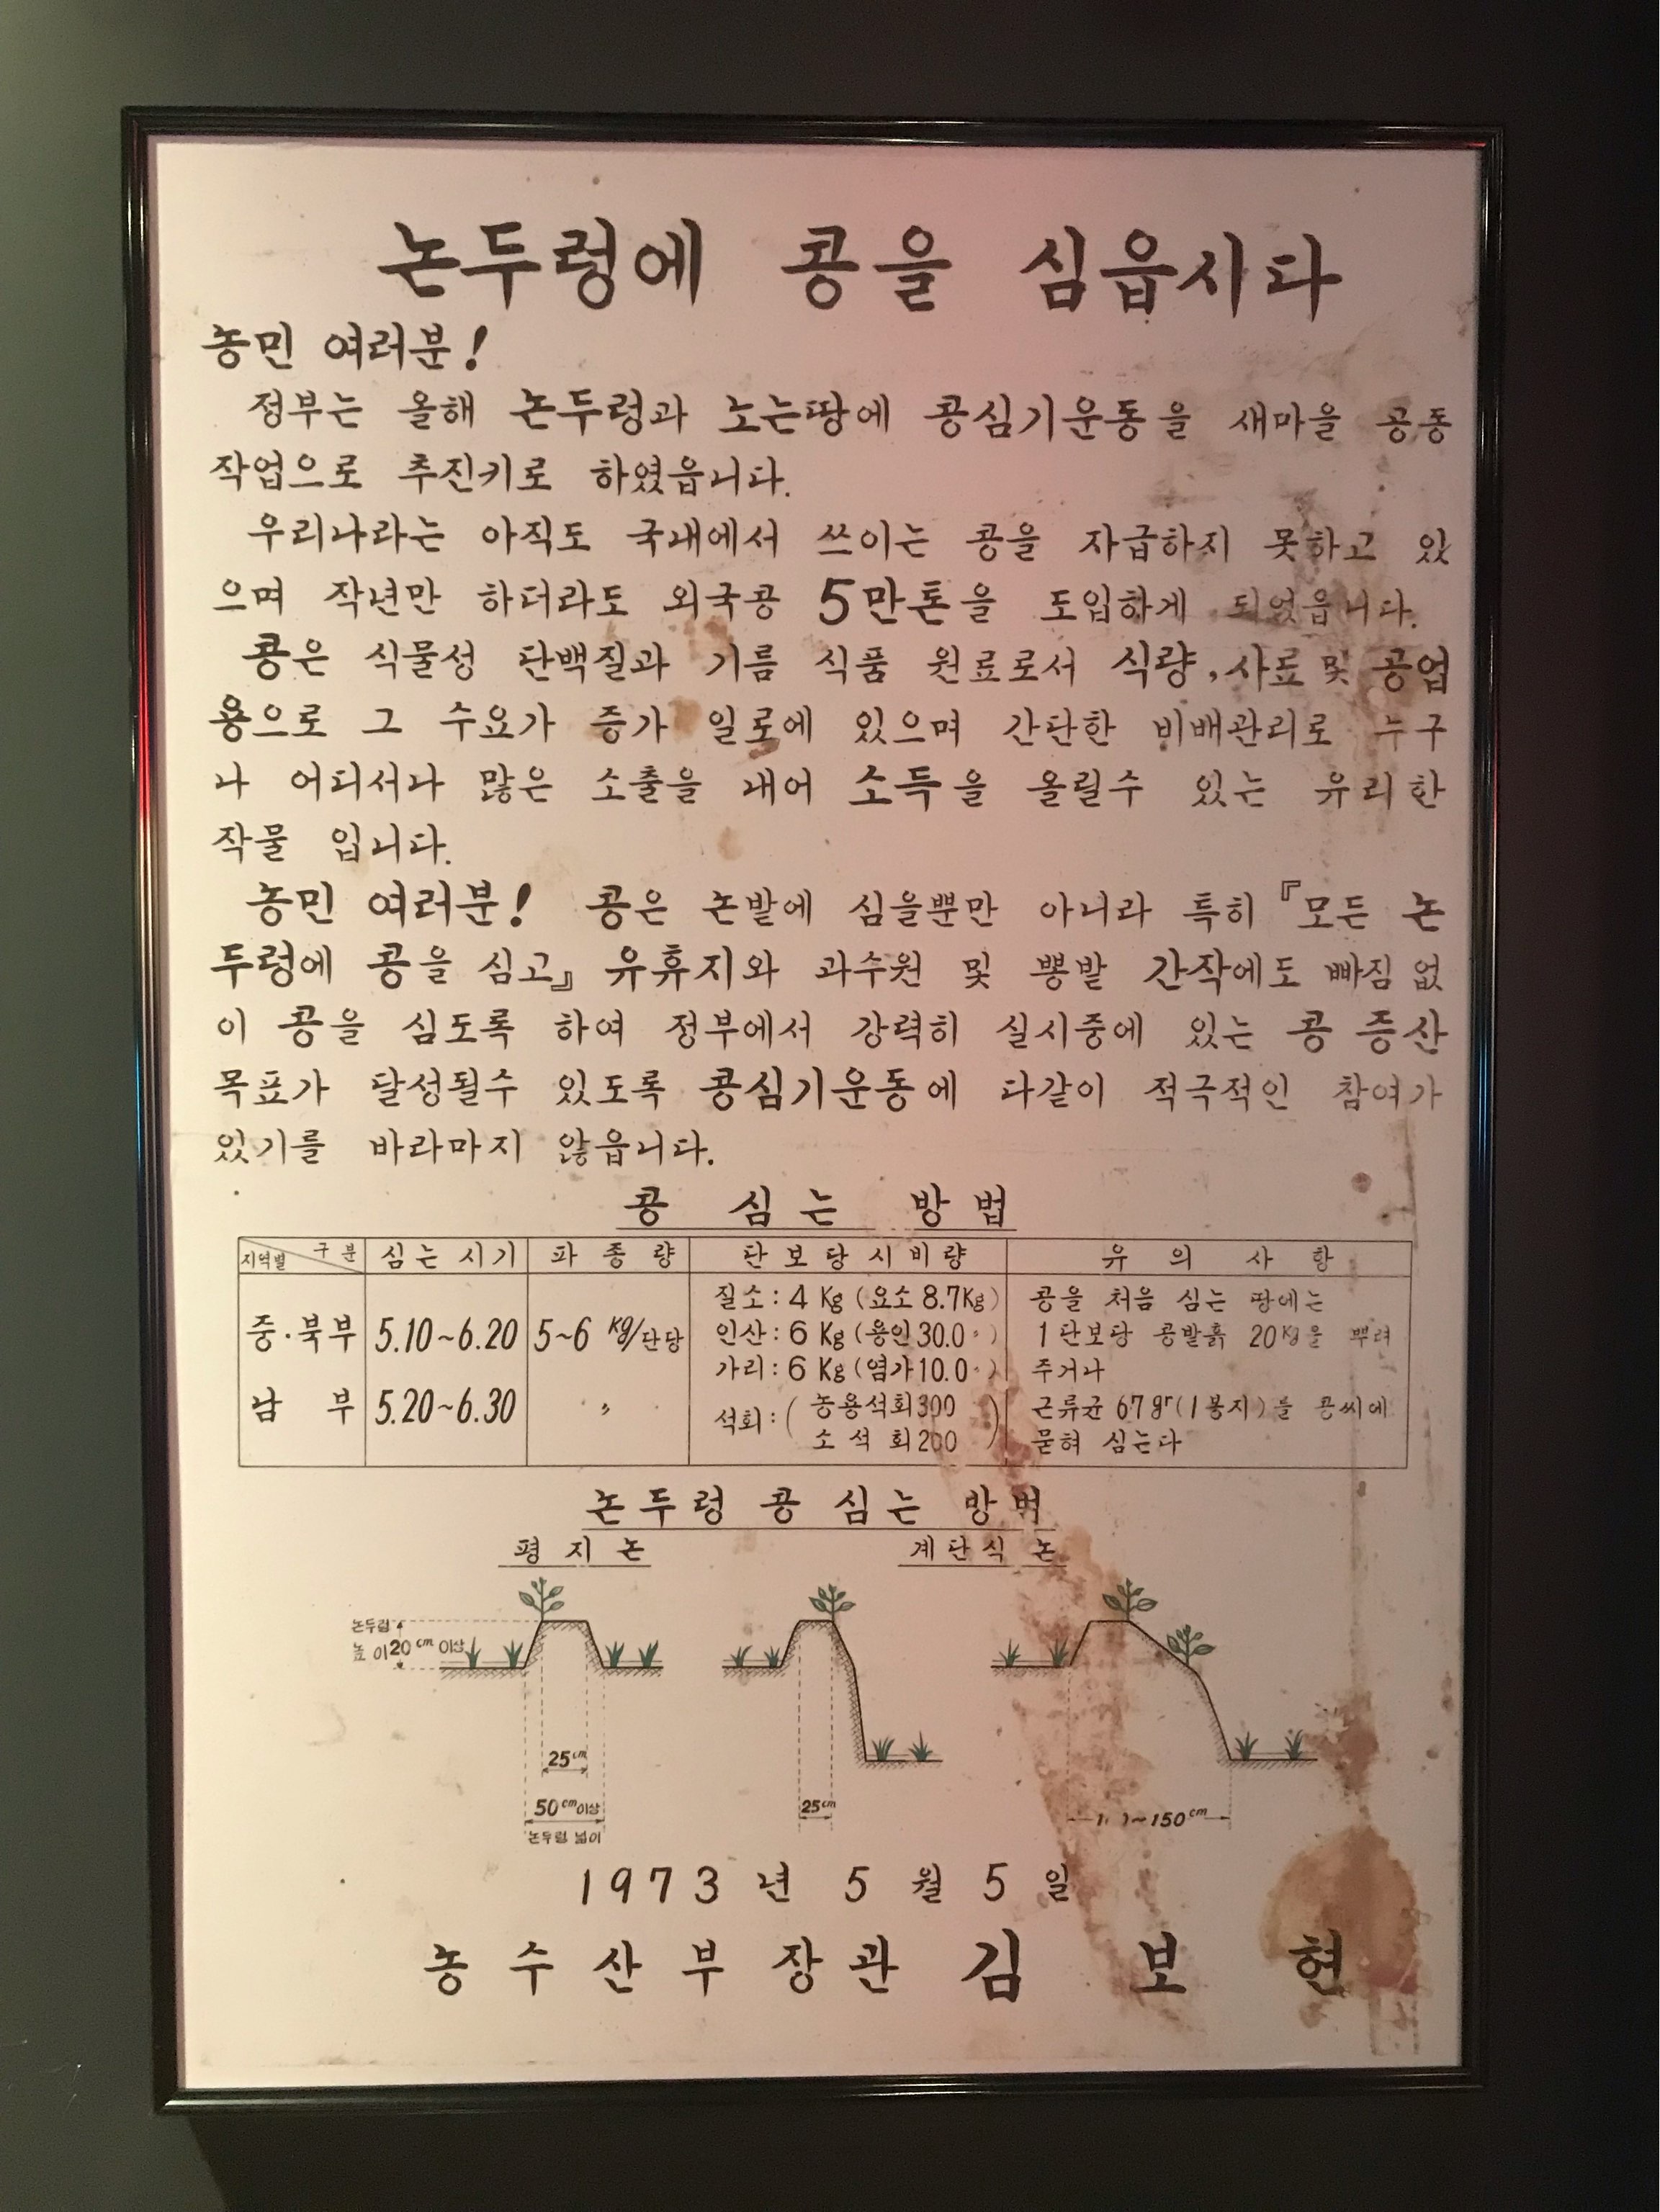 논두렁에 콩을 심읍시다
농민 여러분!
정부는 올해 논두렁과 노는땅에 콩심기운동을 새마을 공동
작업으로 추진키로 하였읍니다.
우리나라는 아직도 국내에서 쓰이는 콩을 자급하지 못하고 있
으며 작년만 하더라도 외국콩 5만톤을 도입하게 되었읍니다.
콩은 식물성 단백질과 기름 식품 원료로서 식량, 사료 및 공업
용으로 그 수요가 증가 일로에 있으며 간단한 비배관리로 누구
나 어디서나 많은 소출을 내어 소득을 올릴수 있는 유리한
작물 입니다.
농민 여러분! 콩은 논밭에 심을뿐만 아니라 특히 『모든 논
두렁에 콩을 심고』 유휴지와 과수원 및 뽕밭 간작에도 빠짐 없
이 콩을 심도록 하여 정부에서 강력히 실시중에 있는 콩 증산
목표가 달성될수 있도록 콩심기운동에 다같이 적극적인 참여가
있기를 바라마지 않읍니다.
콩 심는 방법
지역별 구분 심는시기 파종량 단보당시비량 유의사항
중·북부 5.10~6.20 5~6 Kg/단당
남부 5.20~6.30 〃
질소: 4 Kg (요소 8.7Kg)
인산: 6 Kg (용인 30.0 〃)
가리: 6 Kg (염가 10.0 〃)
석회: (농용석회 300
소석회 200)
콩을 처음 심는 땅에는
1단보당 콩밭흙 20Kg을 뿌려
주거나
근류균 67gr(1봉지)를 콩씨에
묻혀 심는다
논두렁 콩 심는 방법
평지논 계단식 논
논두렁
높이 20cm 이상
25cm
50cm 이상
논두렁 넓이
25cm
~150cm
1973년 5월 5일
농수산부장관 김보현